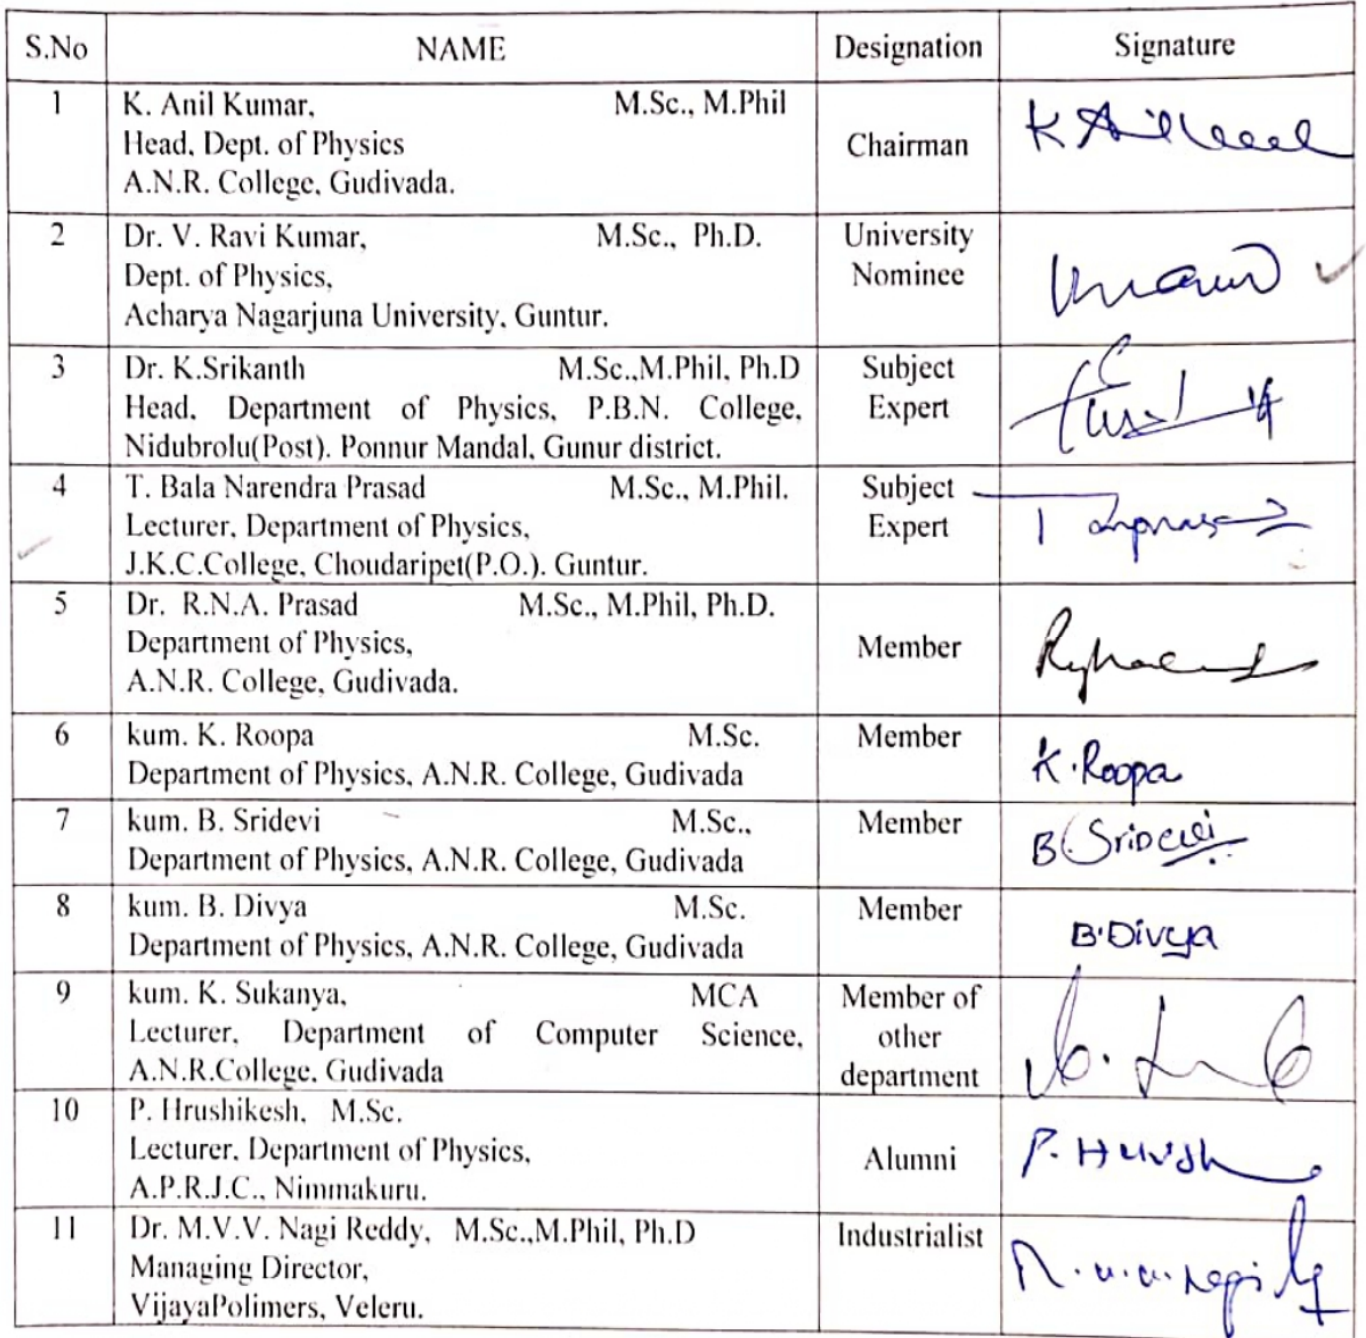 S.No NAME Designation Signature
1 K. Anil Kumar, M.Sc., M.Phil
Head, Dept. of Physics
A.N.R. College, Gudivada.
Chairman
2 Dr. V. Ravi Kumar, M.Sc., Ph.D.
Dept. of Physics,
Acharya Nagarjuna University, Guntur.
University
Nominee
3 Dr. K.Srikanth M.Sc.,M.Phil, Ph.D
Head, Department of Physics, P.B.N. College,
Nidubrolu(Post). Ponnur Mandal, Gunur district.
Subject
Expert
4 T. Bala Narendra Prasad M.Sc., M.Phil.
Lecturer, Department of Physics,
J.K.C.College, Choudaripet(P.O.). Guntur.
Subject
Expert
5 Dr. R.N.A. Prasad M.Sc., M.Phil, Ph.D.
Department of Physics,
A.N.R. College, Gudivada.
Member
6 kum. K. Roopa M.Sc.
Department of Physics, A.N.R. College, Gudivada
Member
K.Roopa
7 kum. B. Sridevi M.Sc.,
Department of Physics, A.N.R. College, Gudivada
Member
B Sridevi
8 kum. B. Divya M.Sc.
Department of Physics, A.N.R. College, Gudivada
Member
B.Divya
9 kum. K. Sukanya, MCA
Lecturer, Department of Computer Science,
A.N.R.College, Gudivada
Member of
other
department
10 P. Hrushikesh, M.Sc.
Lecturer, Department of Physics,
A.P.R.J.C., Nimmakuru.
Alumni
11 Dr. M.V.V. Nagi Reddy, M.Sc.,M.Phil, Ph.D
Managing Director,
VijayaPolimers, Veleru.
Industrialist